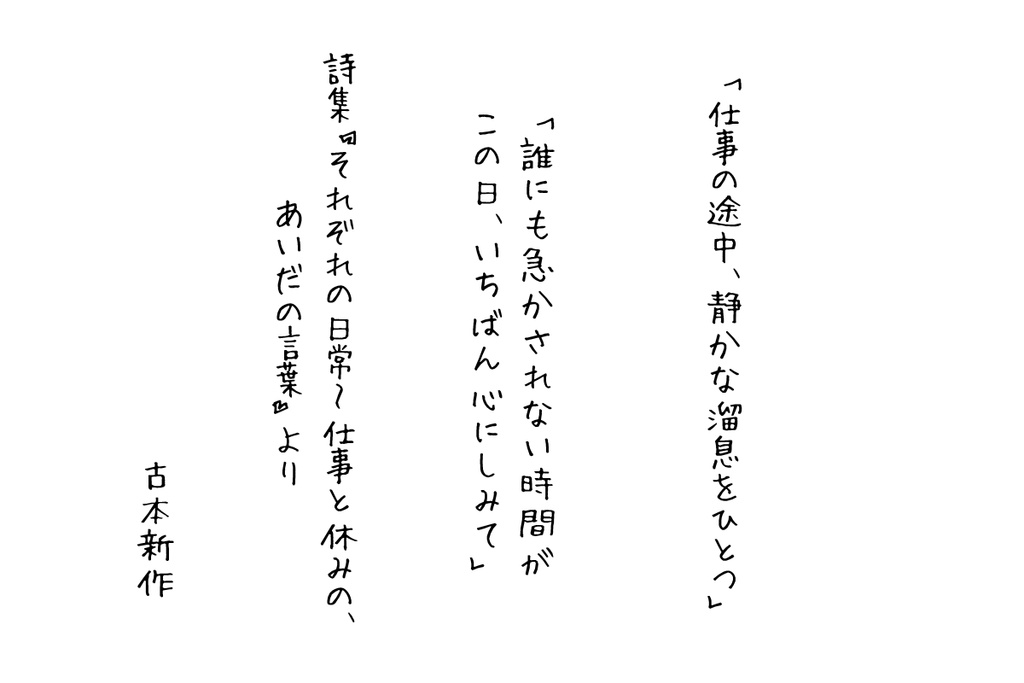 「仕事の途中、静かな溜息をひとつ」
「誰にも急かされない時間が
この日、いちばん心にしみて」
詩集『それぞれの日常～仕事と休みの、
あいだの言葉』より
古本新作